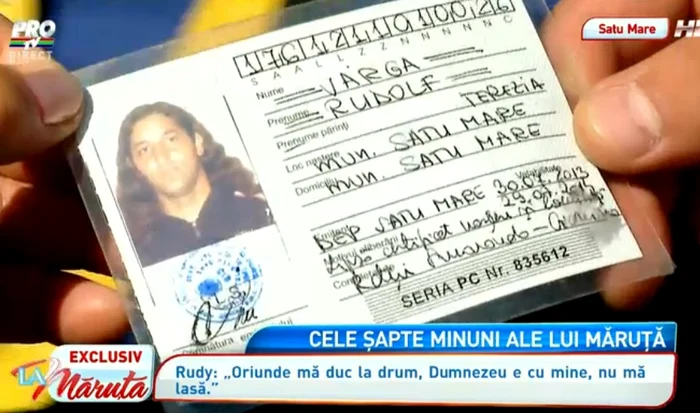 PRO
TV
DIRECT
Satu Mare
HD
1761210100026
S A A L L Z Z N N N N N C
Nume VARGA
Prenume RUDOLF
Prenume părinți TEREZIA
Loc naștere MUN. SATU MARE
Domiciliu MUN. SATU MARE
Valabilitate
Emitentă SEP SATU MARE 30.07.2013
Motivul eliberării
SERIA PC Nr. 835612
CELE ȘAPTE MINUNI ALE LUI MĂRUȚĂ
EXCLUSIV
LA Măruță
Rudy: „Oriunde mă duc la drum, Dumnezeu e cu mine, nu mă
lasă.”